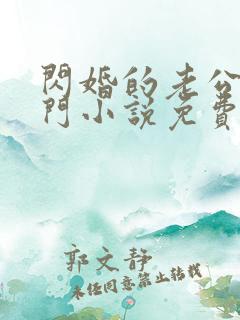 閃婚的老公
門小說免費
郭文靜
未经同意禁止转载